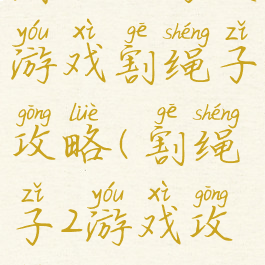 yóu xì gē shéng zǐ
游戏割绳子
gōng lüè gē shéng
攻略(割绳
zǐ yóu xì gōng
子2游戏攻